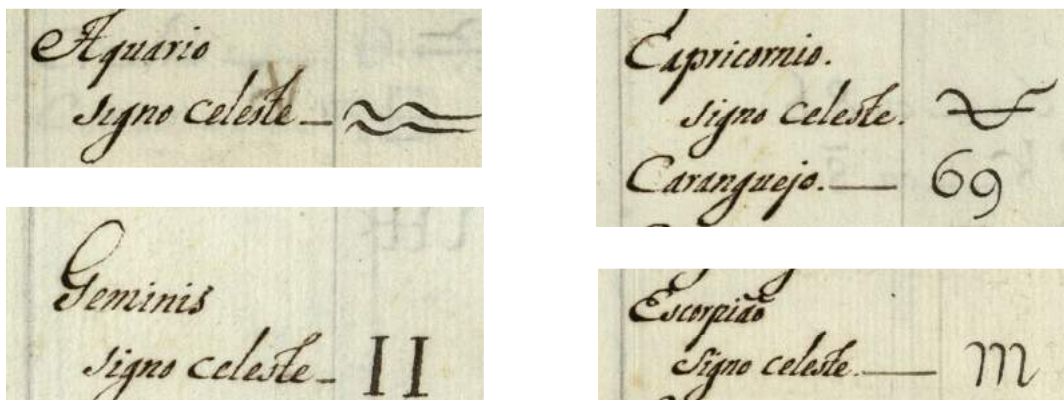 Aquario
signo celeste - ♒
Geminis
signo celeste - II
Capricornio.
signo celeste. ♑
Caranguejo. — 69
Escorpião
signo celeste. — m